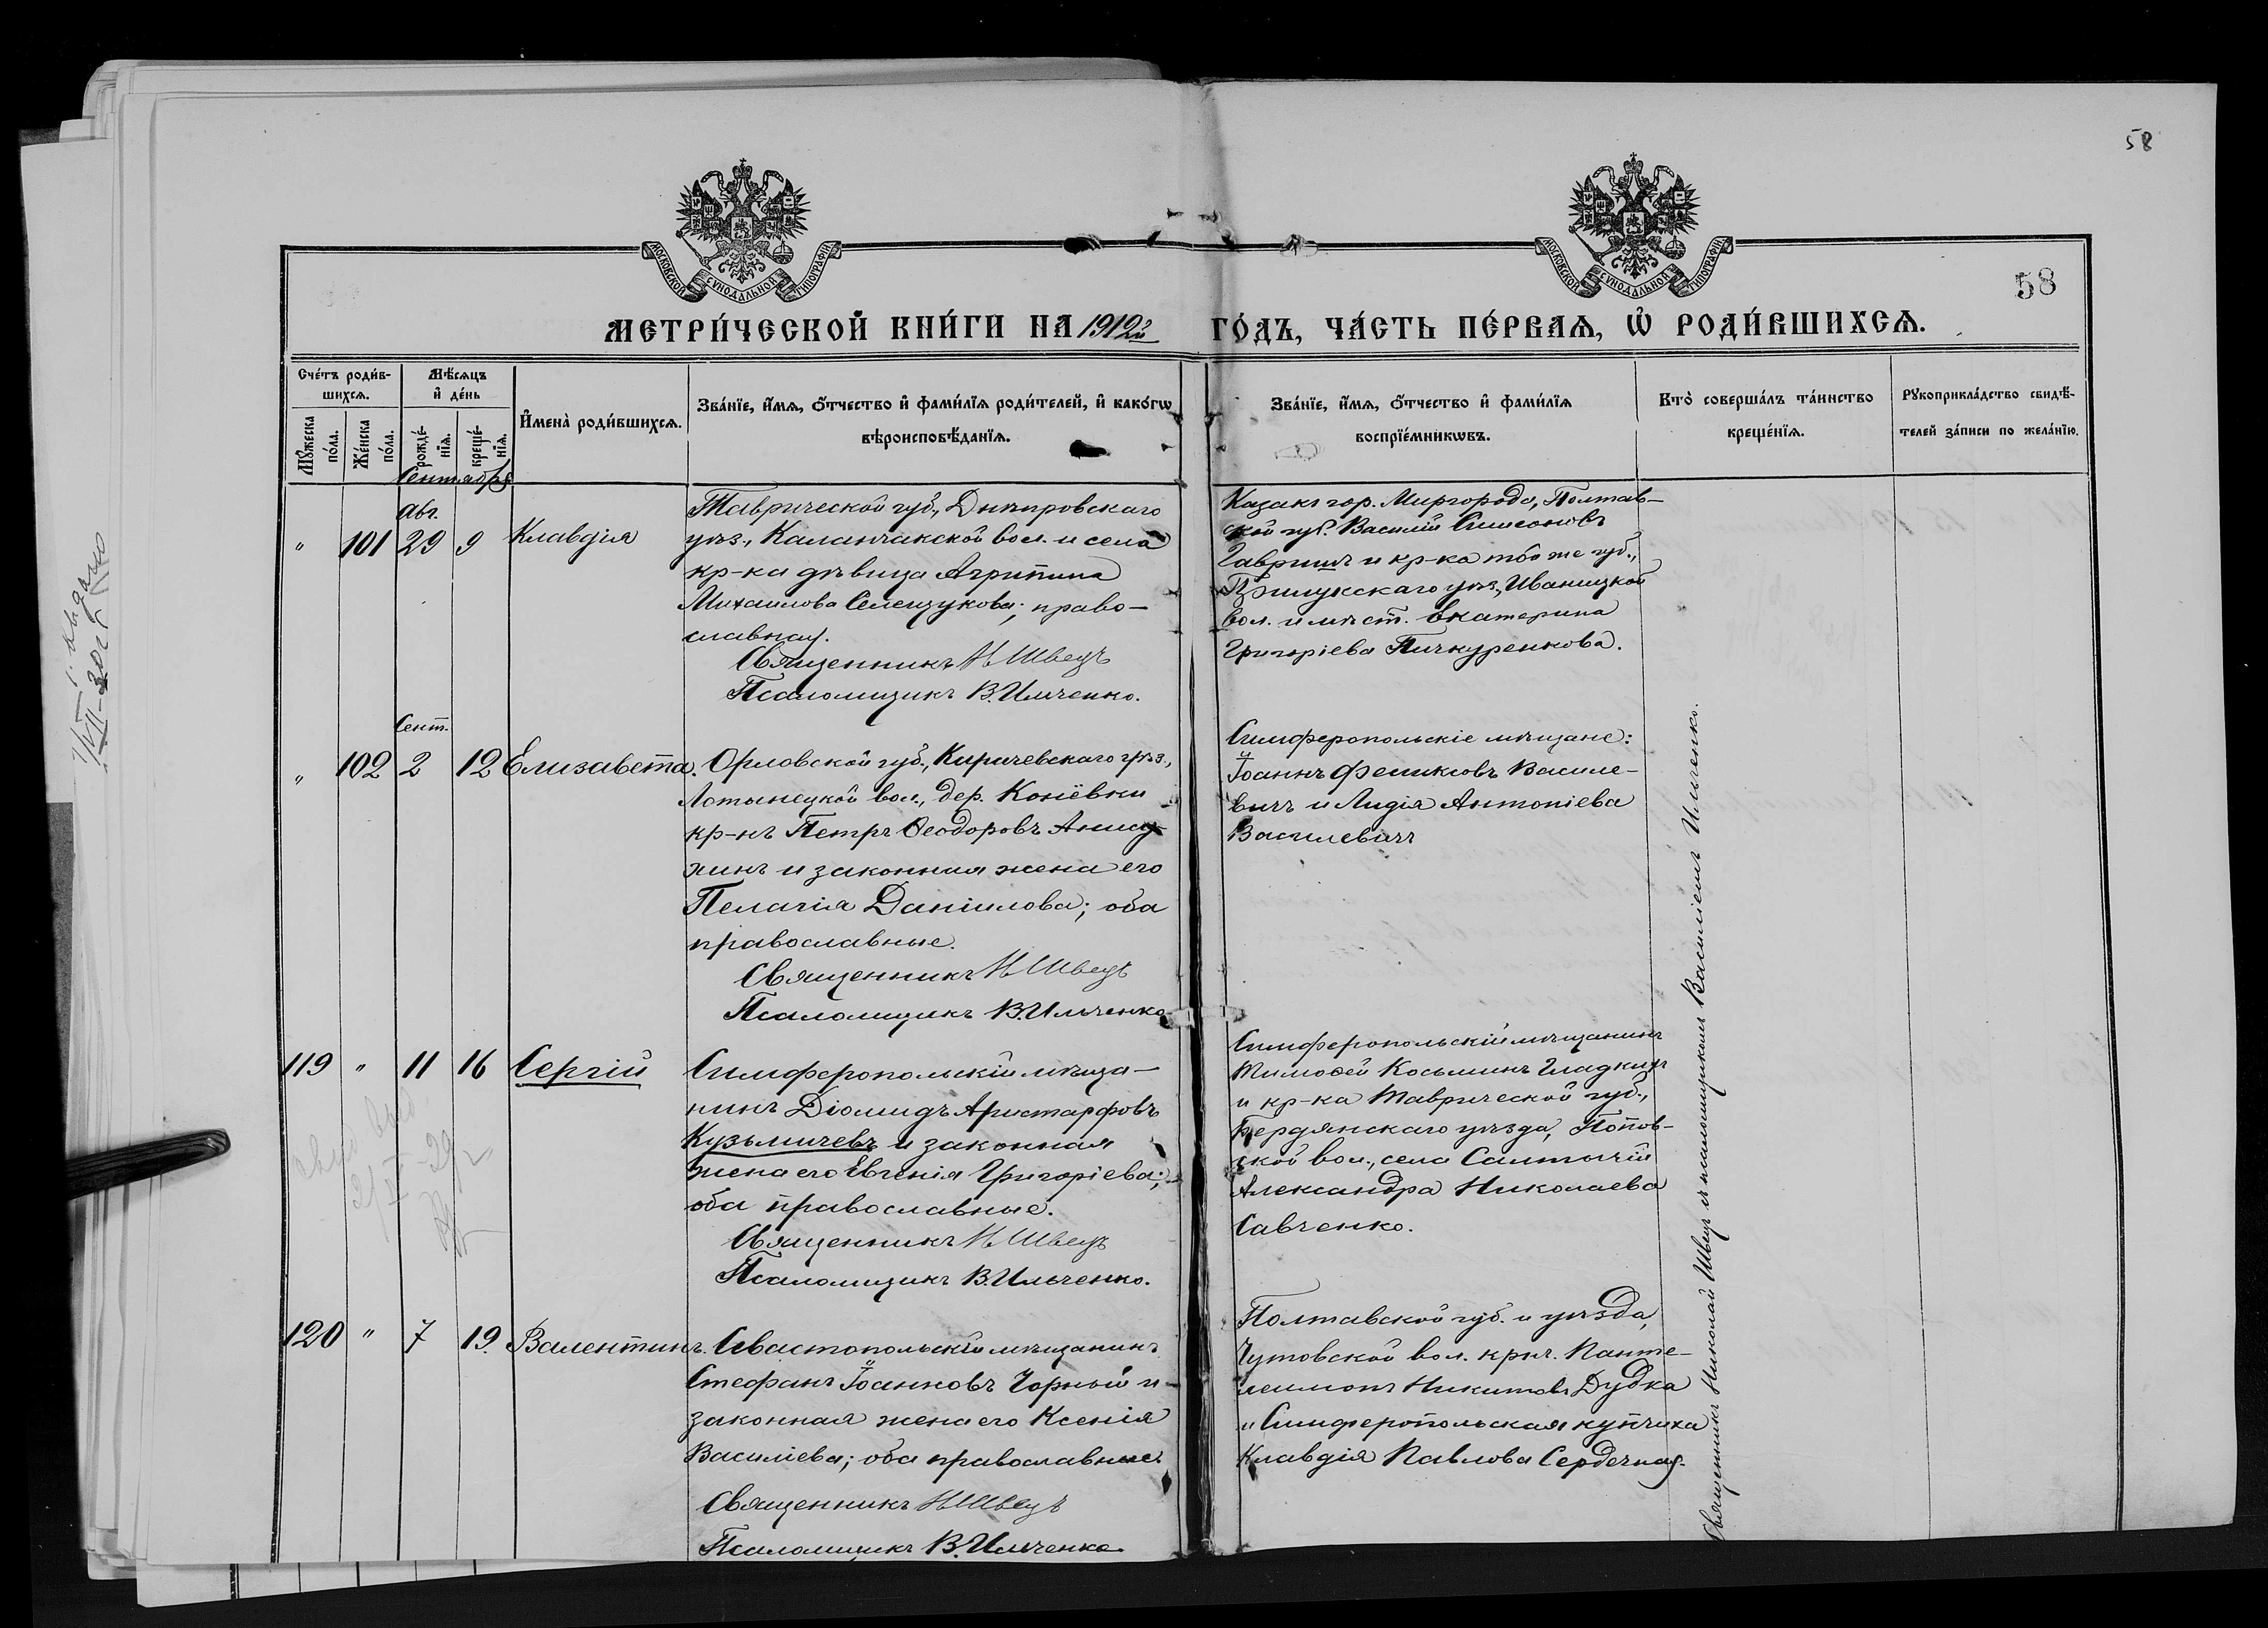 58
58
МОСКОВСКОЙ СѴНОДАЛЬНОЙ ТИПОГРАФІИ
МОСКОВСКОЙ СѴНОДАЛЬНОЙ ТИПОГРАФІИ
МЕТРИ́ЧЕСКОЙ КНИ́ГИ НА 1912й ГО́ДЪ, ЧА́СТЬ ПЕ́РВАѦ, Ѡ РОДИ́ВШИХСѦ.
Сче́тъ роди́в-
шихсѧ.
Мꙋ́жеска
по́ла.
Же́нска
по́ла.
Мѣ́сѧцъ
и де́нь
рожде́-
нїѧ.
креще́-
нїѧ.
Имена̀ роди́вшихсѧ.
Зва́нїе, и́мѧ, о́тчество и фами́лїѧ роди́телей, и како́гѡ
вѣроисповѣ́данїѧ.
Зва́нїе, и́мѧ, о́тчество и фами́лїѧ
воспрїе́мникѡвъ.
Кто̀ соверша́лъ та́инство
креще́нїѧ.
Рꙋкоприкла́дство свидѣ́-
телей за́писи по жела́нїю.
Сентябрь
Авг.
" 101 29 9 Клавдія
Таврической губ., Днѣпровскаго
уѣз., Каланчакской вол. и села
кр-ка дѣвица Агрипина
Михаилова Селещукова; право-
славная.
Священникъ Н Швецъ
Псаломщикъ В. Ильченко.
Казакъ гор. Миргорода, Полтав-
ской губ. Василій Симеоновъ
Гавришъ и кр-ка той же губ.,
Прилукскаго уѣз., Иваницкой
вол. и мѣст. Екатерина
Григоріева Пичкуренкова.
Сент.
" 102 2 12 Елизавета.
Орловской губ., Карачевскаго уѣз.,
вол., дер. Конёвки
кр-нъ Петръ Ѳеодоровъ
и законная жена его
Пелагія Даніилова; оба
православные.
Священникъ Н Швецъ
Псаломщикъ В. Ильченко
Симферопольскіе мѣщане:
Іоаннъ Феликсовъ Василе-
вичъ и Лидія Антоніева
Василевичъ
119 " 11 16 Сергій
Симферопольскій мѣща-
нинъ Діомидъ Аристарховъ
Кузьмичевъ и законная
жена его Евгенія Григоріева;
оба православные.
Священникъ Н Швецъ
Псаломщикъ В. Ильченко.
Симферопольскій мѣщанинъ
Тимоѳей Косьминъ Гладкихъ
и кр-ка Таврической губ.,
Бердянскаго уѣзда, Попов-
ской вол., села Салтычій
Александра Николаева
Савченко.
120 " 7 19. Валентинъ.
Севастопольскій мѣщанинъ
Стефанъ Іоанновъ Чорный и
законная жена его Ксенія
Василіева; оба православные
Священникъ Н Швецъ
Псаломщикъ В. Ильченко
Полтавской губ. и уѣзда,
Чутовской вол. крн. Панте-
леимонъ Никитовъ Дудка
и Симферопольская купчиха
Клавдія Павлова Сердечная.
Священникъ Николай Швецъ съ псаломщикомъ Василіемъ Ильченко.